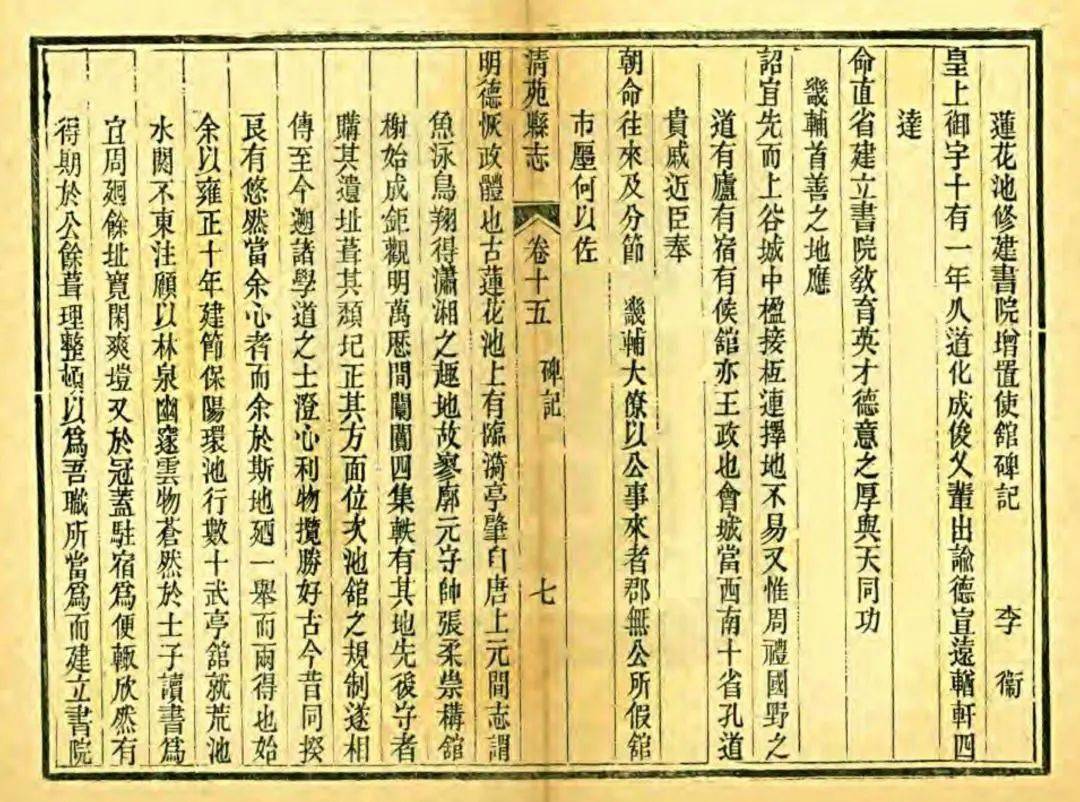 蓮花池修建書院增置使舘碑記 李衞
皇上御宇十有一年久道化成俊乂輩出諭德宣遠輶軒四
達
命直省建立書院敎育英才德意之厚與天同功
畿輔首善之地應
詔宜先而上谷城中楹接桓連擇地不易又惟周禮國野之
道有廬有宿有候舘亦王政也會城當西南十省孔道
貴戚近臣奉
朝命往來及分節 畿輔大僚以公事來者郡無公所假舘
市廛何以佐
清苑縣志 卷十五 碑記 七
明德恢政體也古蓮花池上有臨漪亭肇自唐上元間志謂
魚泳鳥翔得瀟湘之趣地故寥廓元守帥張柔崇構舘
榭始成鉅觀明萬厯間闤闠四集軼有其地先後守者
購其遺址葺其頹圮正其方面位次池舘之規制遂相
傳至今遡諸學道之士澄心利物攬勝好古今昔同揆
良有悠然當余心者而余於斯地廼一舉而兩得也始
余以雍正十年建節保陽環池行數十武亭舘就荒池
水閼不東注顧以林泉幽邃雲物蒼然於士子讀書爲
宜周廻餘址寛閑爽塏又於冠蓋駐宿爲便輙欣然有
得期於公餘葺理整頓以爲吾職所當爲而建立書院